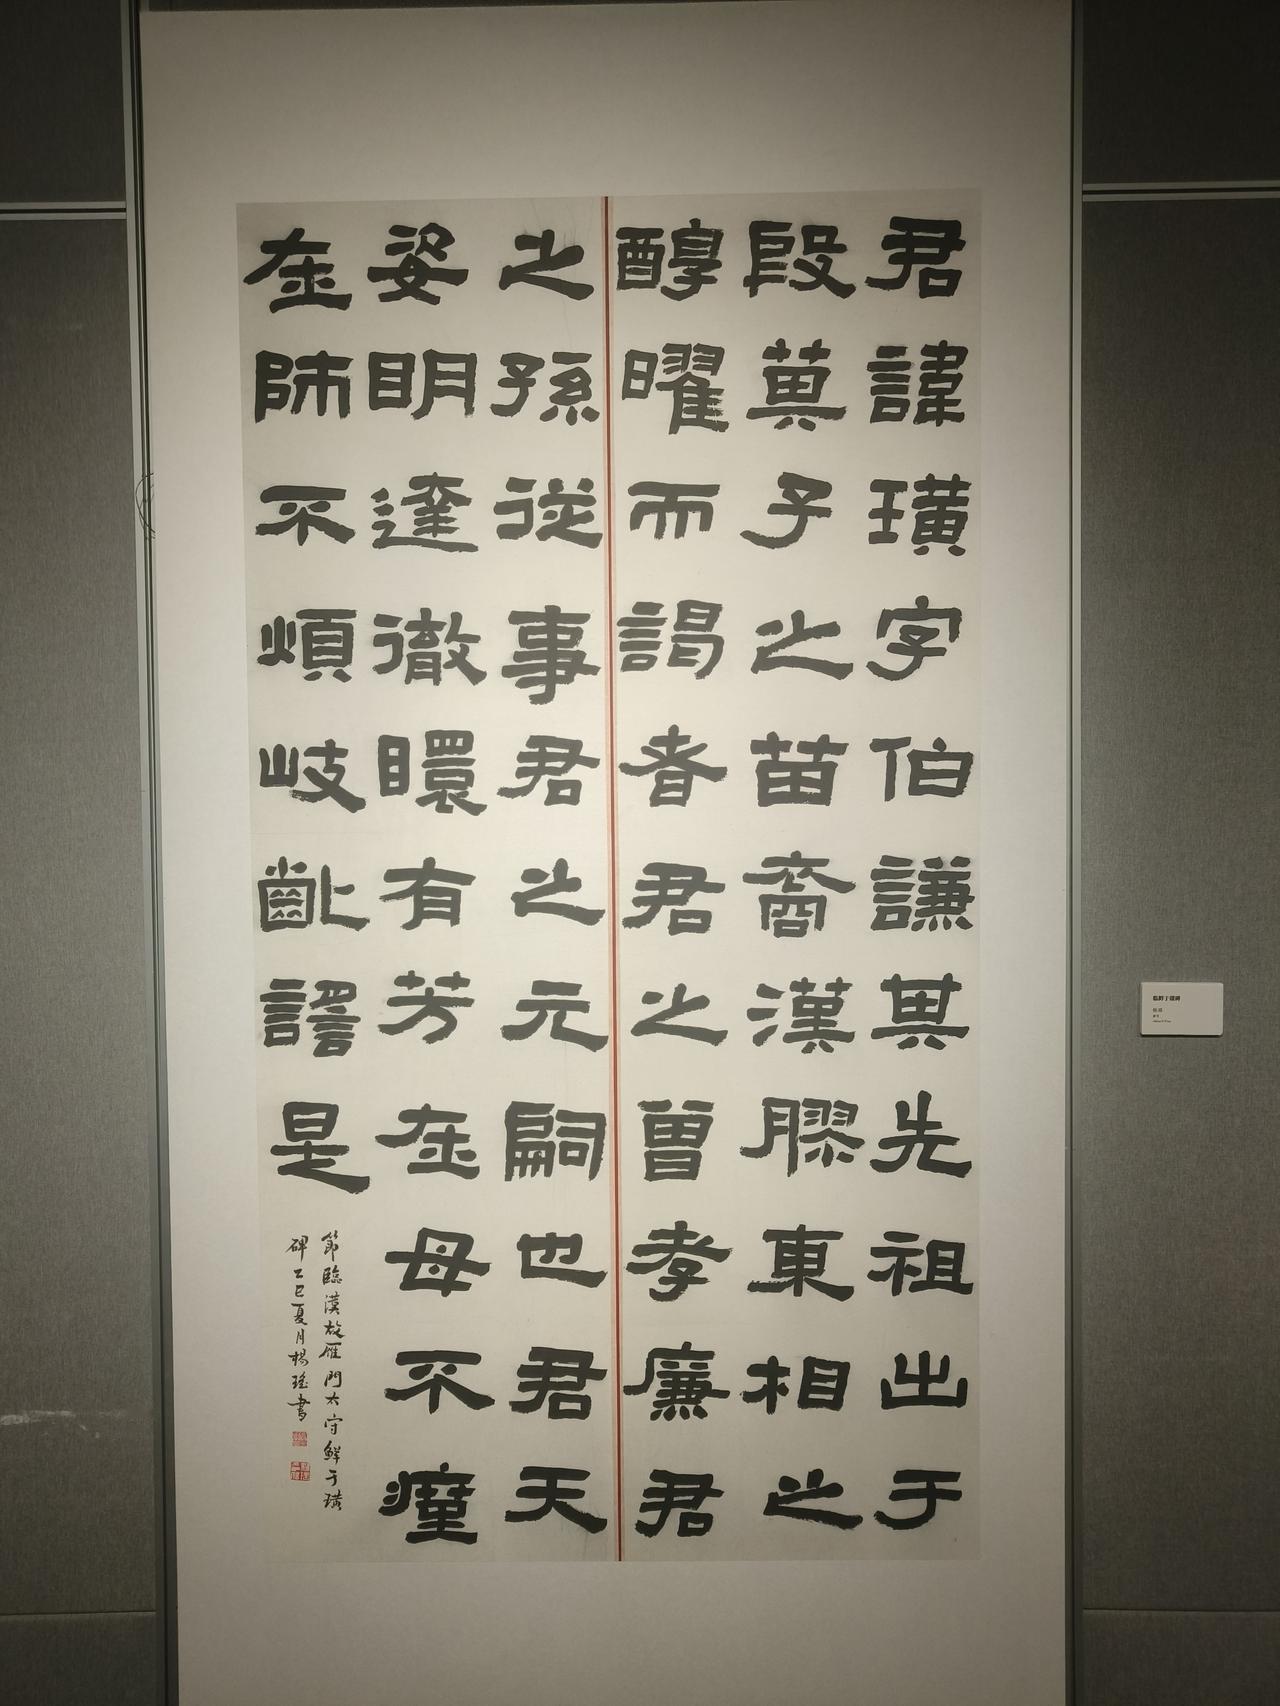 君諱璜字伯謙其先祖出于
段萁子之苗裔漢膠東相之
醇曜而謁者君之曾孝廉君
之孫從事君之元嗣也君天
姿明達徹瞏有芳在母不瘽
在師不煩岐齔謣是
節臨漢故雁門太守鮮于璜
碑乙巳夏月楊瑤書
臨鮮于璜碑